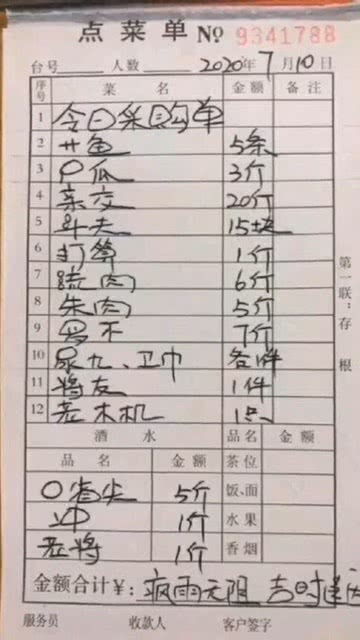 点菜单 № 9341788
台号 人数 2020年7月10日
序号 菜名 金额 备注
1 今日采购单
2 廿鱼 5条
3 口瓜 3斤
4 亲交 20斤
5 斗夫 15块
6 打算 1斤
7 疏肉 6斤
8 朱肉 5斤
9 罗不 7斤
10 尿九、卫巾 各1件
11 将友 1件
12 老木机 1只
第一联：存根
酒水 品名 金额
品名 金额 茶位
〇省尖 5斤 饭、面
冲 1斤 水果
老将 1斤 香烟
金额合计￥: 疯雨无阻 吉时
服务员 收款人 客户签字